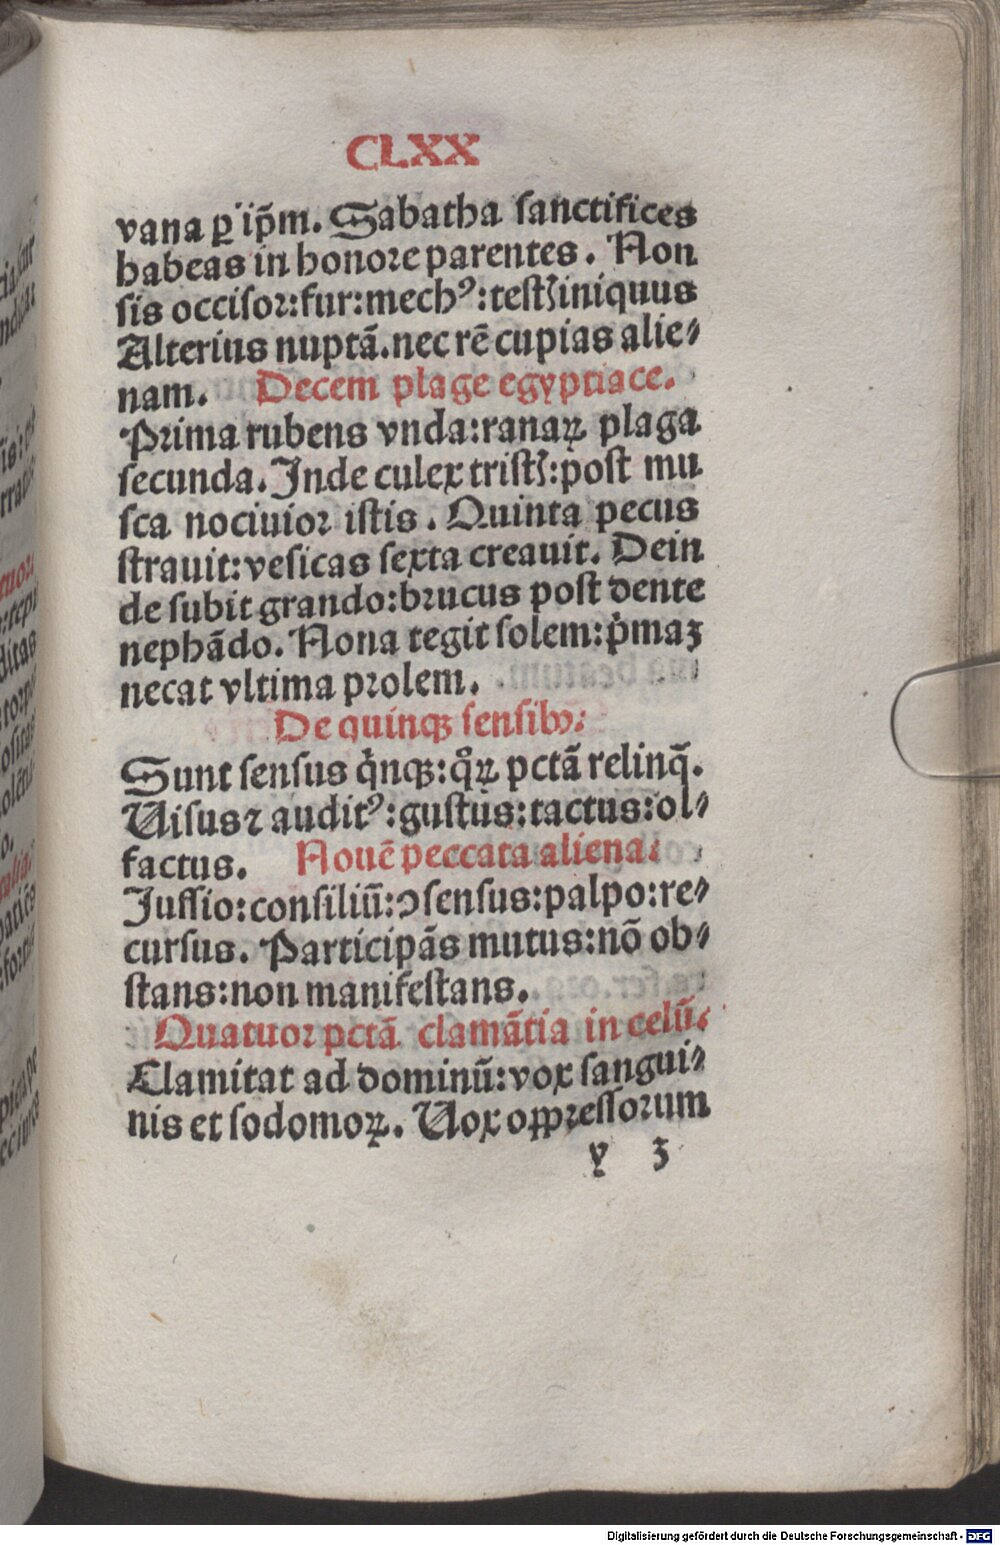 CLXX
vana ꝑ ip̄m. Sabatha sanctifices
habeas in honore parentes. Non
sis occisor:fur:mechꝰ:testꝭ iniquus
Alterius nuptā.nec rē cupias alie⸗
nam. Decem plage egyptiace.
Prima rubens vnda:ranaꝝ plaga
secunda. Inde culex tristꝭ:post mu
sca nociuior istis. Quinta pecus
strauit:vesicas sexta creauit. Dein
de subit grando:brucus post dente
nephādo. Nona tegit solem:pͥmaꝫ
necat vltima prolem.
De quinqꝫ sensibꝰ.
Sunt sensus qͥnqꝫ:qͦꝝ pctā relinq̄.
Uisus ⁊ auditꝰ:gustus:tactus:ol⸗
factus. Nouē peccata aliena.
Iussio:consiliū:ↄsensus:palpo:re⸗
cursus. Participās mutus:nō ob⸗
stans:non manifestans.
Quatuor pctā clamātia in celū.
Clamitat ad dominū:vox sangui⸗
nis et sodomoꝝ. Uox oꝑpressorum
y 3
Digitalisierung gefördert durch die Deutsche Forschungsgemeinschaft - DFG